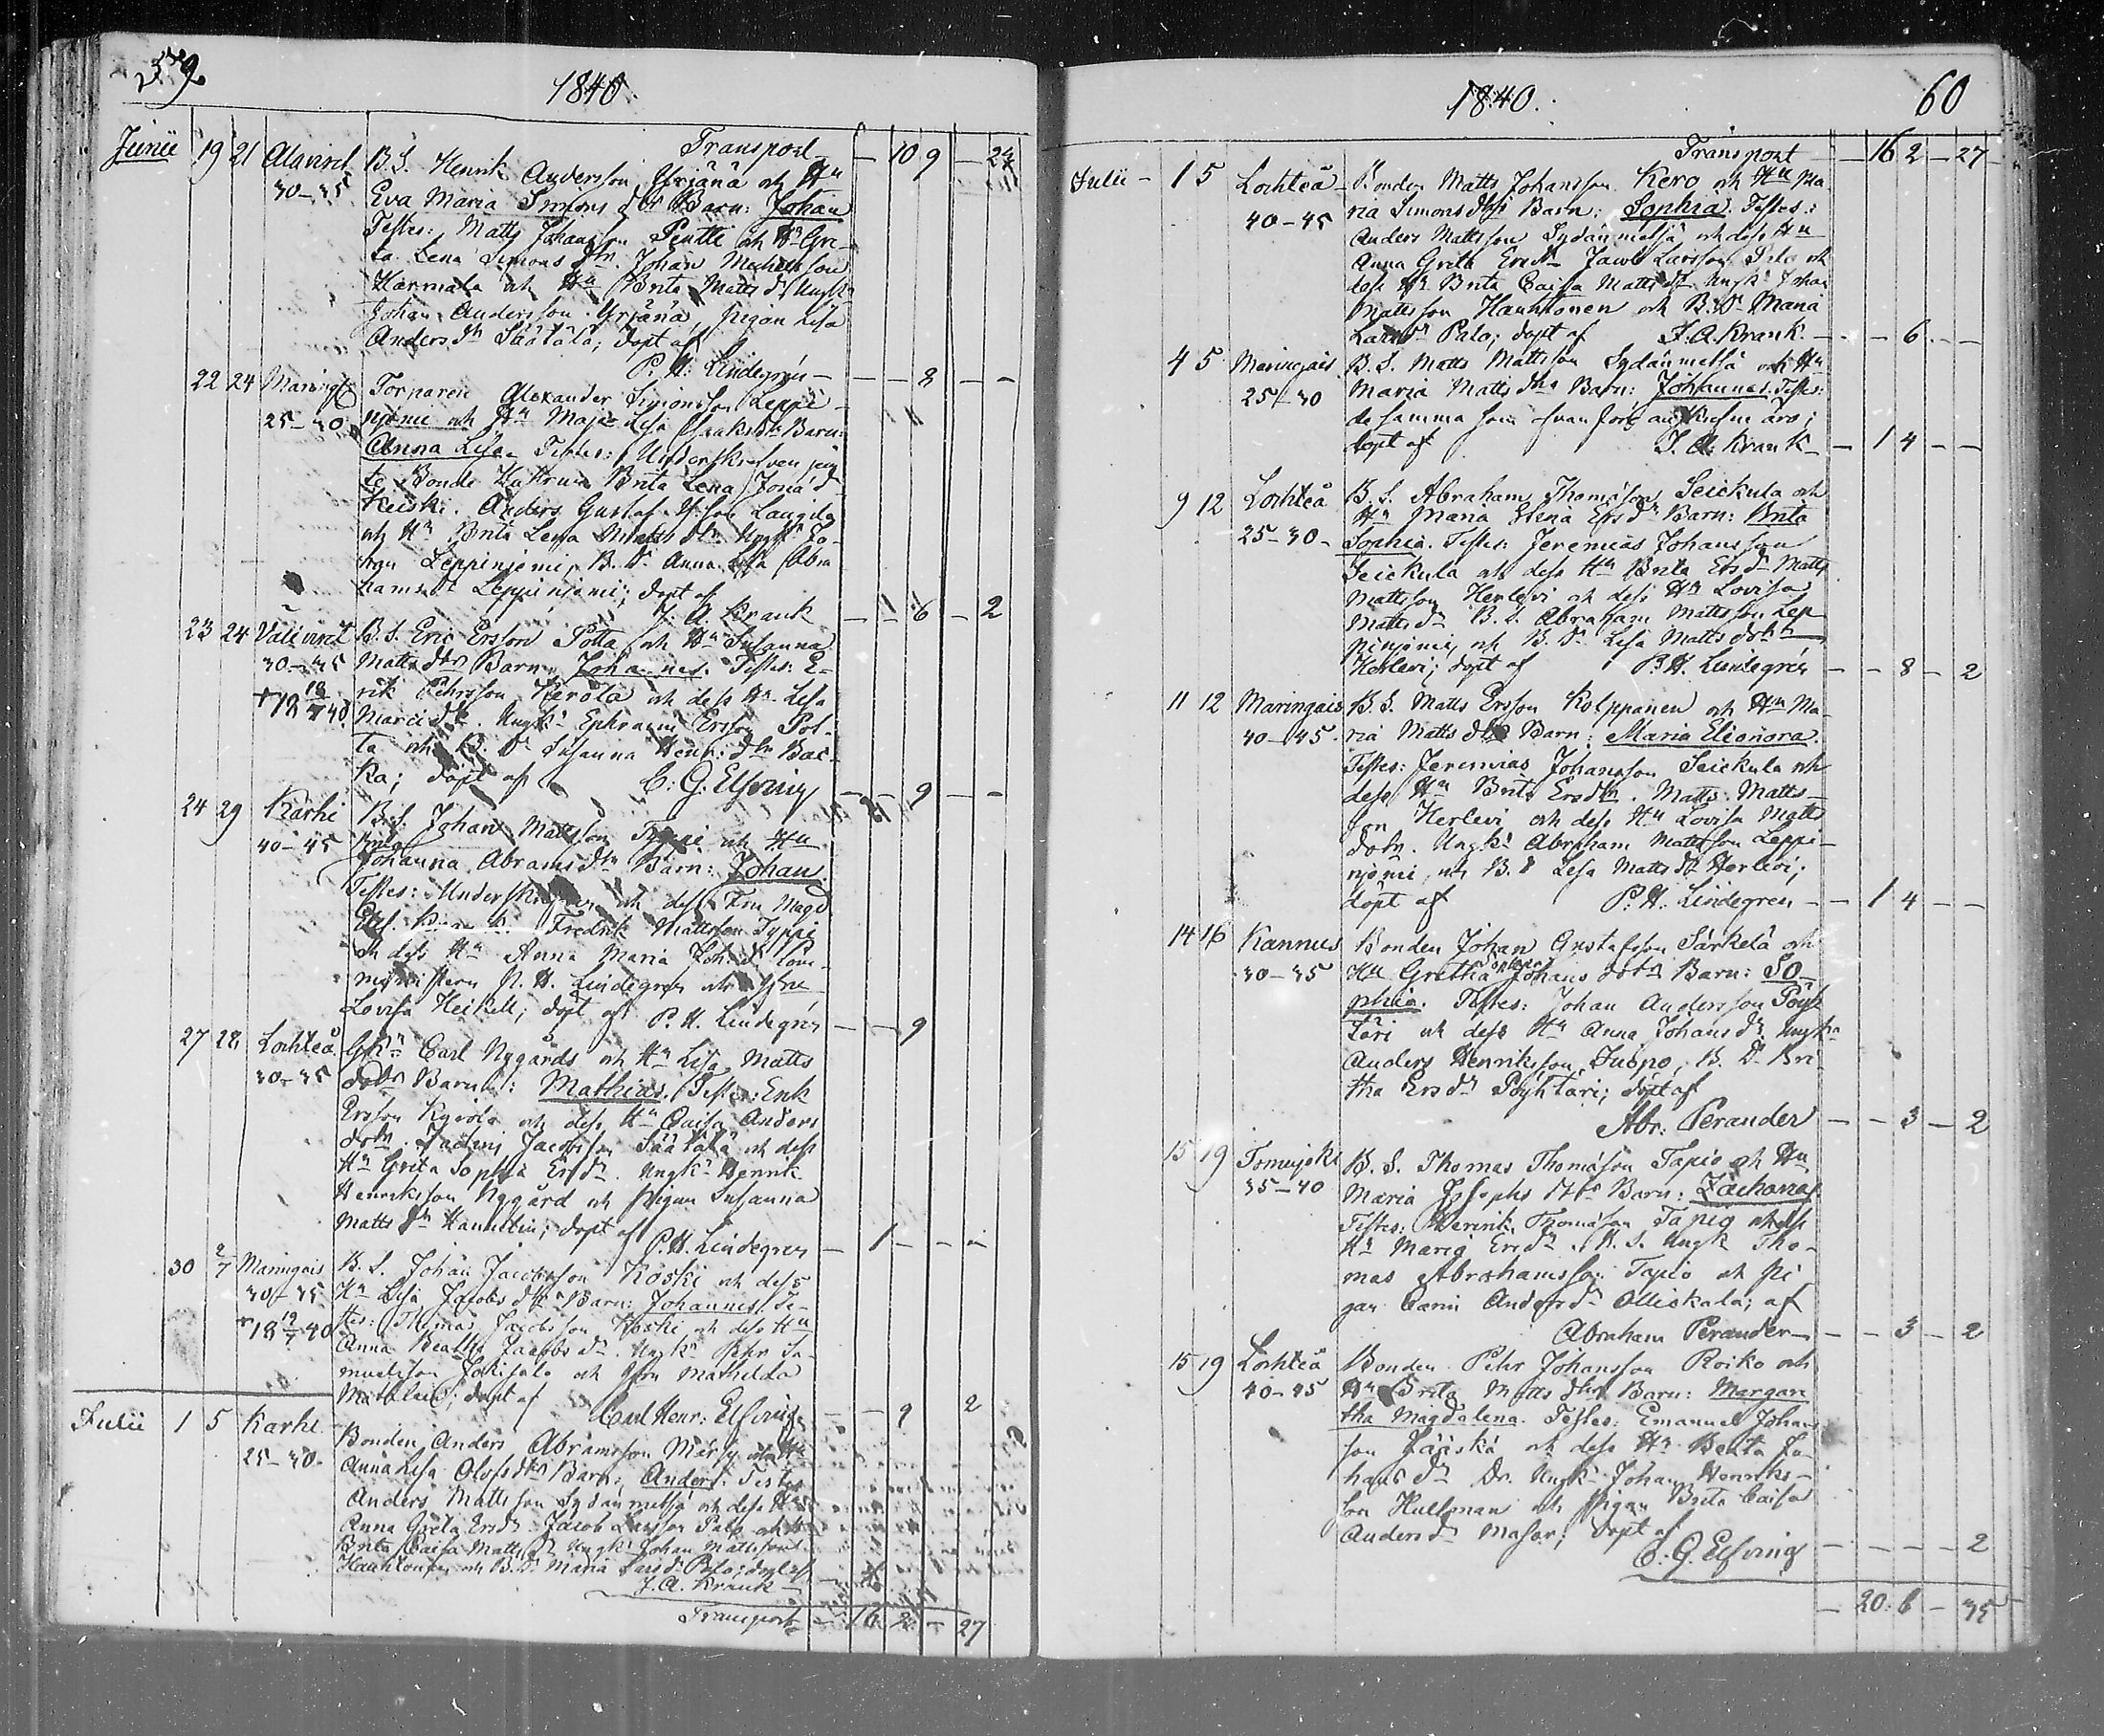 59
1840.
Transport — 10 9 — 24
Junii 19 21 Alaviret B. S. Henrik Andersson Yrjänä och Hu
30–35 Eva Maria Simons dtr Barn: Johan
Testes: Matts Johansson Penttä och Hu Gre-
ta Lena Simons dtr. Johan Michelsson
Harmala och Hu Brita Matts dr Ungk:
Johan Andersson Yrjänä, pigan Lisa
Anders dr Säätälä; döpt af
P. H. Lindegrén — — — 8 — —
22 24 Maringais Torparen Alexander Simonsson Leppi-
25–30 njemi och Hu Maja Lisa Isaks dr Barn:
Anna Lisa. Testes: Underskrefven jem-
te Bonde Hustrun Brita Lena Jona d.
Keiski. Anders Gustaf son Laugila
och Hu Brita Lena Matts dtr Ungk Jo-
han Leppinjemi, B. Dr Anna Lisa Abra
hams dr Leppinjemi; döpt af
J. A. Krank — 1 6 — 2
23 24 Välivirret B. S. Eric Ersson Potta och Hu Susanna
30–35 Matts dtr Barn Johannes. Testes: E-
+ 18 18/7 40 rik Pehrsson Kerola och dess Hu Lisa
Marci dtr. Ungk: Ephraim Ersson Pot-
ta och B. Dr Susanna Henr: dtr Bac-
ka; döpt af C. G. Elfving — — 9 — —
24 29 Karhi B. S. Johan Mattsson Typpi och Hu
40–45 Brita
Johanna Abrams dtr Barn: Johan.
Testes: Underskrefven och dess Fru Magd
Fredrik Mattsson Typpi
och dess Hu Anna Maria Joh: dr Com-
ministern P. H. Lindegren och Fru
Lovisa Heikell; döpt af P. H. Lindegrén — — 9
27 28 Lochteå Carl Nygårds och Hu Lisa Matts
30–35 dotr Barn: Mathias. Testes: Erik
Ersson och dess Hu Caisa Anders
dotr. Jacobsson Säätälä och dess
Hu Greta Sophia Ers dr. Ungk: Henrik
Henriksson Nygård och Pigan Susanna
Matts dr döpt af
P. H. Lindegren — 1 — — —
30 2/7 Maringais B. S. Johan Jacobsson Koski och dess
30–35 Hu Lisa Jacobs dtr Barn: Johannes. Te-
+ 18 19/7 40 stes: Thomas Jacobsson Koski och dess Hu
Anna Beata Jacobs dr. Ungk: Pehr Sa-
muelsson Jokisalo och Mathilda
döpt af Carl Henr: Elfving — — 9 2
Julii 1 5 Karhi Bonden Anders Abramsson Märsy och Hu
25–30. Anna Lisa Olofs dtr Barn: Anders. Testes
Anders Mattsson Sydänmetsä och dess Hu
Anna Greta Ers dr. Jacob Larsson Palo och Hu
Brita Caisa Matts dr Ungk: Johan Mattsson
Hauhtonen och B. Dr Maria Lars dr Palo; döpt af
J. A. Krank
Transport — 16 2 — 27
1840.
60
Transport — 16 2 — 27
Julii – 1 5 Lochteå – Bonden Matts Johansson Kero och Hu Ma
40–45 ria Simons dtr Barn: Sophia. Testes:
Anders Mattsson Sydänmetsä och dess Hu
Anna Greta Ers dr Jacob Larsson Palo och
dess Hu Brita Caisa Matts dr Ungk: Johan
Mattsson Hauhtonen och B. Dr Maria
Lars dr Palo; döpt af J. A. Krank. — — 6 — —
4 5 Maringais B. S. Matts Mattsson Sydänmetsä och Hu
25–30 Maria Matts dtr Barn: Johannes. Testes:
de samma som ofvanföre äro;
döpt af J. A. Krank — 1 4 — —
9 12 Lochteå B. S. Abraham Thomasson Seickula och
25–30 – Hu Maria Elena Ers dr Barn: Brita
Sophia. Testes: Jeremias Johansson
Seickula och dess Hu Brita Ers dr Matts
Mattsson Herlevi och dess Hu Lovisa
Matts dr B. S. Abraham Mattsson Lep
pinjemi och B. Dr Lisa Matts dotr
Herlevi; döpt af P. H. Lindegrén — — 8 — 2
11 12 Maringais B. S. Matts Ersson Kolppanen och Hu Ma-
40–45. ria Matts dtr Barn: Maria Elionora.
Testes: Jeremias Johansson Seickula och
dess Hu Brita Ers dtr. Matts Matts-
son Herlevi och dess Hu Lovisa Matts
dotr. Ungk: Abraham Mattsson Leppi-
njemi, och B. D Lisa Matts dr Herlevi;
döpt af P. H. Lindegren — — 1 4 — —
14 16 Kannus Bonden Johan Gustafsson Särkelä och
30–35 Hu Gretha Sophia Johans dotr Barn: So-
phia. Testes: Johan Andersson Pöyh
täri och dess Hu Anna Johans dr Ungk:
Anders Henriksson Juopo, B. Dr Bri
tha Ers dr Pöyhtäri; döpt af
Abr: Perander — — 3 — 2
15 19 Tomujoki B. S. Thomas Thomasson Tapio och Hu
35–40 Maria Josephs dtr Barn: Zacharias
Testes: Henrik Thomasson Tapio och dess
Hu Maria Ers dr. B. S. Ungk Tho-
mas Abrahamsson Tapio och Pi
gan Carin Anders dr Olliskala; af
Abraham Perander — — 3 — 2
15 19 Lochteå Bonden Pehr Johansson Roiko och
40–45 Hu Brita Matts dtr Barn: Margare
tha Magdalena. Testes: Emanuel Johans
son Jääskä och dess Hu Beata Jo-
hans dr Dr. Ungk: Johan Henriks-
son Hultman och Pigan Brita Caisa
Anders dr Masar; döpt af
C. G. Elfving — — — — 2
— 20 6 — 35